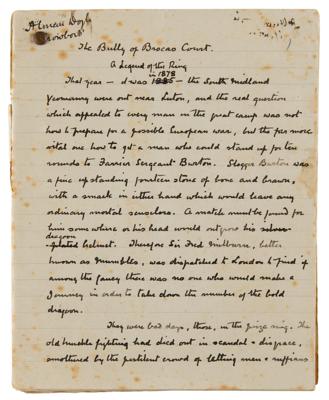 A. Conan Doyle
Crowborough
The Bully of Brocas Court.
A Legend of the Ring
in 1878
That year – it was 1885 – the South Midland
Yeomanry were out near Luton, and the real question
which appealed to every man in the great camp was not
how to prepare for a possible European war, but the far more
vital one how to get a man who could stand up for ten
rounds to Farrier Sergeant Burton. Slogger Burton was
a fine upstanding fourteen stone of bone and brawn,
with a smack in either hand which would leave any
ordinary mortal senseless. A match must be found for
him somewhere or his head would outgrow his silver-
dragoon
plated helmet. Therefore Sir Fred Milburn, better
known as Mumbles, was dispatched to London to find if
among the fancy there was no one who would make a
journey in order to take down the number of the bold
dragoon.
They were bad days, those, in the prize ring. The
old knuckle fighting had died out in scandal + disgrace,
smothered by the pestilent crowd of betting men + ruffians